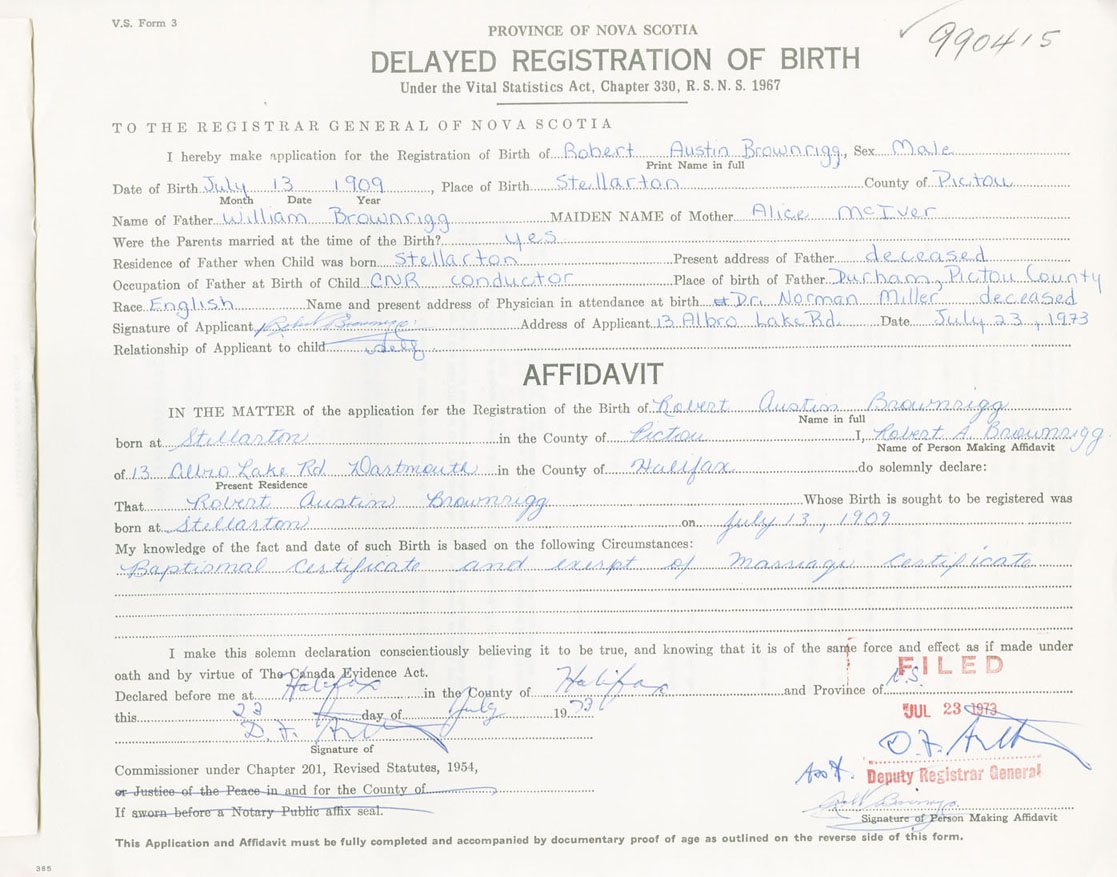 V.S. Form 3
990415
PROVINCE OF NOVA SCOTIA
DELAYED REGISTRATION OF BIRTH
Under the Vital Statistics Act, Chapter 330, R.S.N.S. 1967
TO THE REGISTRAR GENERAL OF NOVA SCOTIA
I hereby make application for the Registration of Birth of Robert Austin Brownrigg, Sex Male
Print Name in full
Date of Birth July 13 1909, Place of Birth Stellarton County of Pictou
Month Date Year
Name of Father William Brownrigg MAIDEN NAME of Mother Alice McIver
Were the Parents married at the time of the Birth? yes
Residence of Father when Child was born Stellarton Present address of Father deceased
Occupation of Father at Birth of Child CNR conductor Place of birth of Father Durham, Pictou County
Race English Name and present address of Physician in attendance at birth Dr. Norman Miller deceased
Signature of Applicant Robert Brownrigg Address of Applicant 13 Albro Lake Rd. Date July 23, 1973
Relationship of Applicant to child self
AFFIDAVIT
IN THE MATTER of the application for the Registration of the Birth of Robert Austin Brownrigg
Name in full
born at Stellarton in the County of Pictou I, Robert A. Brownrigg
Name of Person Making Affidavit
of 13 Albro Lake Rd Dartmouth in the County of Halifax do solemnly declare:
Present Residence
That Robert Austin Brownrigg Whose Birth is sought to be registered was
born at Stellarton on July 13, 1909
My knowledge of the fact and date of such Birth is based on the following Circumstances:
Baptismal Certificate and exerpt of Marriage Certificate
I make this solemn declaration conscientiously believing it to be true, and knowing that it is of the same force and effect as if made under
oath and by virtue of The Canada Evidence Act.
FILED
Declared before me at Halifax in the County of Halifax and Province of N.S.
this 23 day of July 1973
JUL 23 1973
D. F.
Signature of
D. F.
Commissioner under Chapter 201, Revised Statutes, 1954,
Asst. Deputy Registrar General
or Justice of the Peace in and for the County of
If sworn before a Notary Public affix seal.
Robert Brownrigg
Signature of Person Making Affidavit
This Application and Affidavit must be fully completed and accompanied by documentary proof of age as outlined on the reverse side of this form.
385